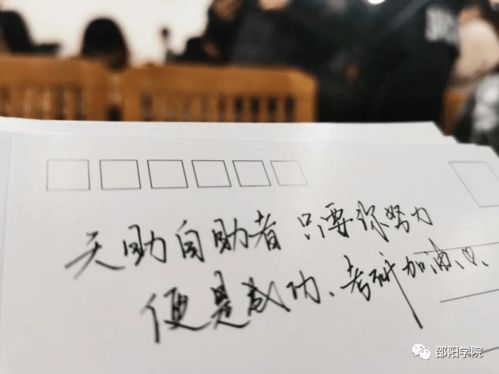 天助自助者 只要你努力
便是成功、考研加油
邵阳学院